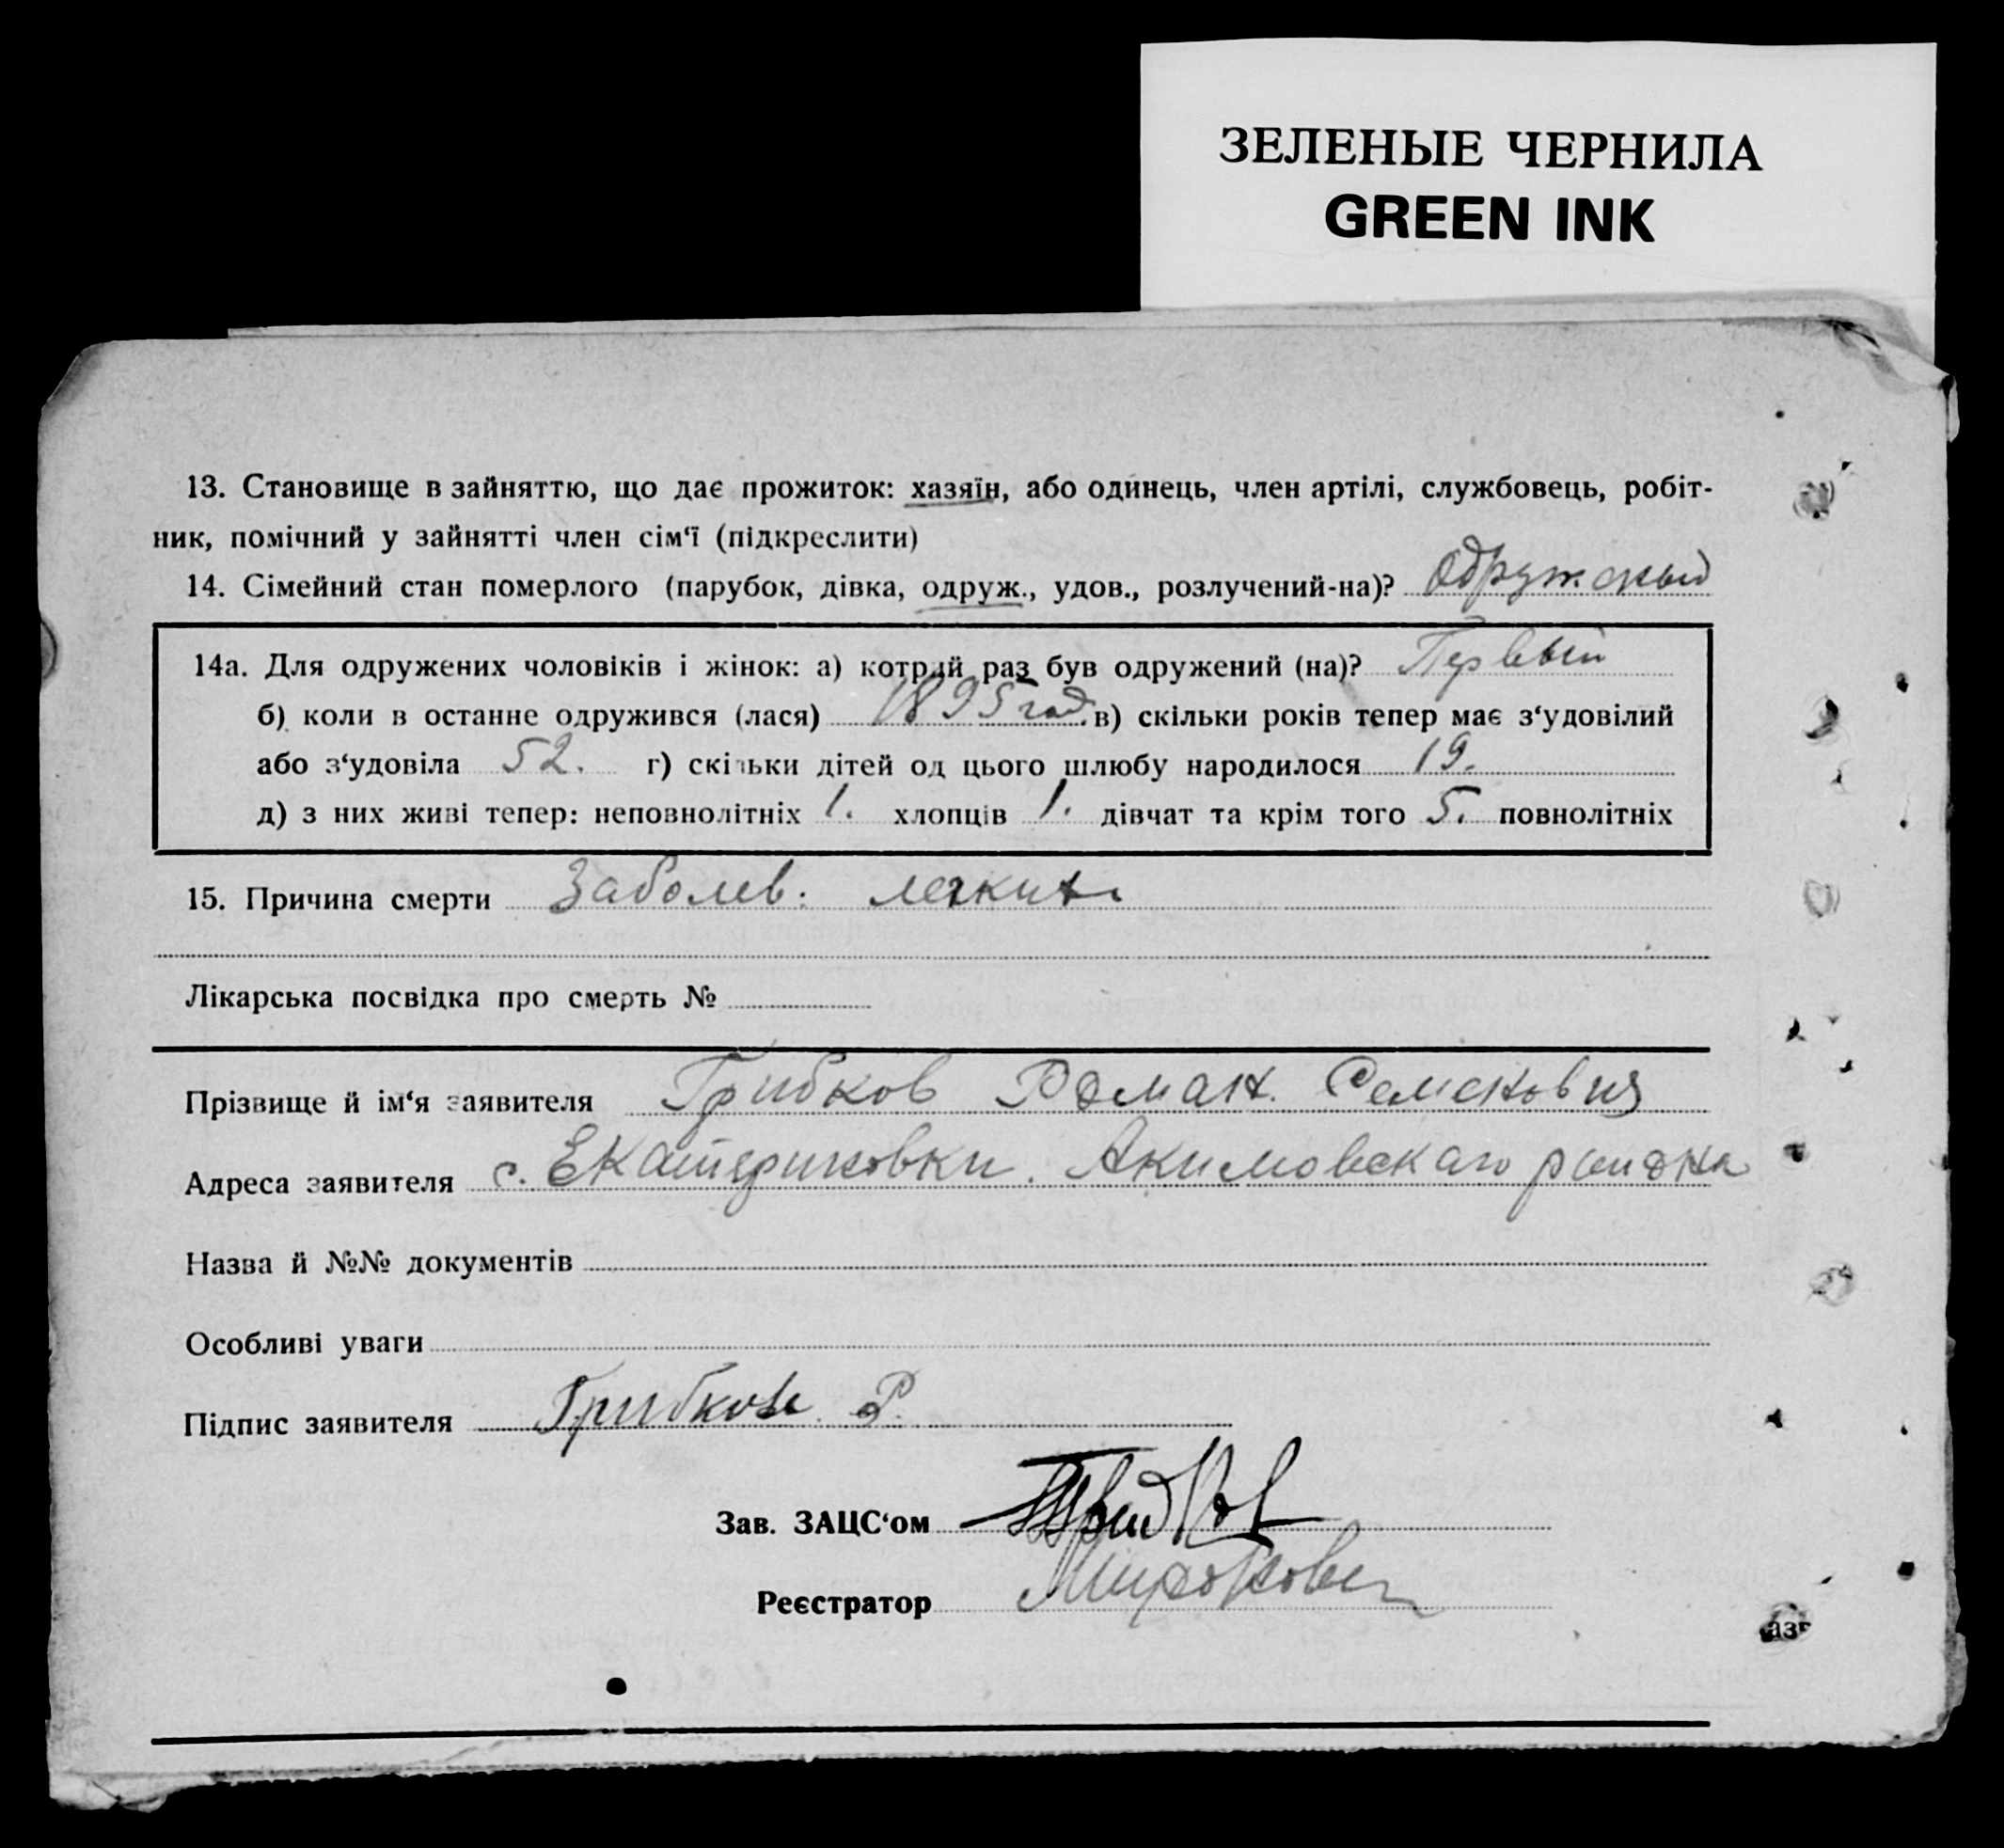 ЗЕЛЕНЫЕ ЧЕРНИЛА
GREEN INK
13. Становище в зайняттю, що дає прожиток: хазяїн, або одинець, член артілі, службовець, робіт-
ник, помічний у зайнятті член сім‘ї (підкреслити)
14. Сімейний стан померлого (парубок, дівка, одруж., удов., розлучений-на)?
14а. Для одружених чоловіків і жінок: а) котрий раз був одружений (на)? Первый
б) коли в останнє одружився (лася) 1895 год. в) скільки років тепер має з‘удовілий
або з‘удовіла 52. г) скільки дітей од цього шлюбу народилося 19.
д) з них живі тепер: неповнолітніх 1. хлопців 1. дівчат та крім того 5. повнолітніх
15. Причина смерти Заболев:
Лікарська посвідка про смерть №
Прізвище й ім‘я заявителя Грибков Роман. Семенович
Адреса заявителя с. Екатериновки. Акимовскаго района
Назва й №№ документів
Особливі уваги
Підпис заявителя Грибков Р.
Зав. ЗАЦС‘ом
Реєстратор